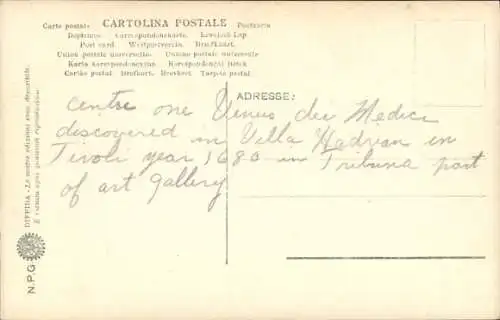 Carte postale CARTOLINA POSTALE Postkarte
Dopisnice Correspondenzkarte. Levelező-Lap.
Post card. Weltpostverein. Briefkaart.
Union postale universelle. Unione postale universale
Karta Korespondencyjna. Korespondenční lístek
Cartão postal Brefkort. Brevkort Tarjeta postal.
ADRESSE:
Centre one Venus dei Medici
discovered in Villa Hadrian in
Tivoli year 1680 in Tribuna part
of art gallery
DIFFIDA - Le nostre edizioni sono depositate.
È vietata ogni qualsiasi riproduzione.
N.P.G.